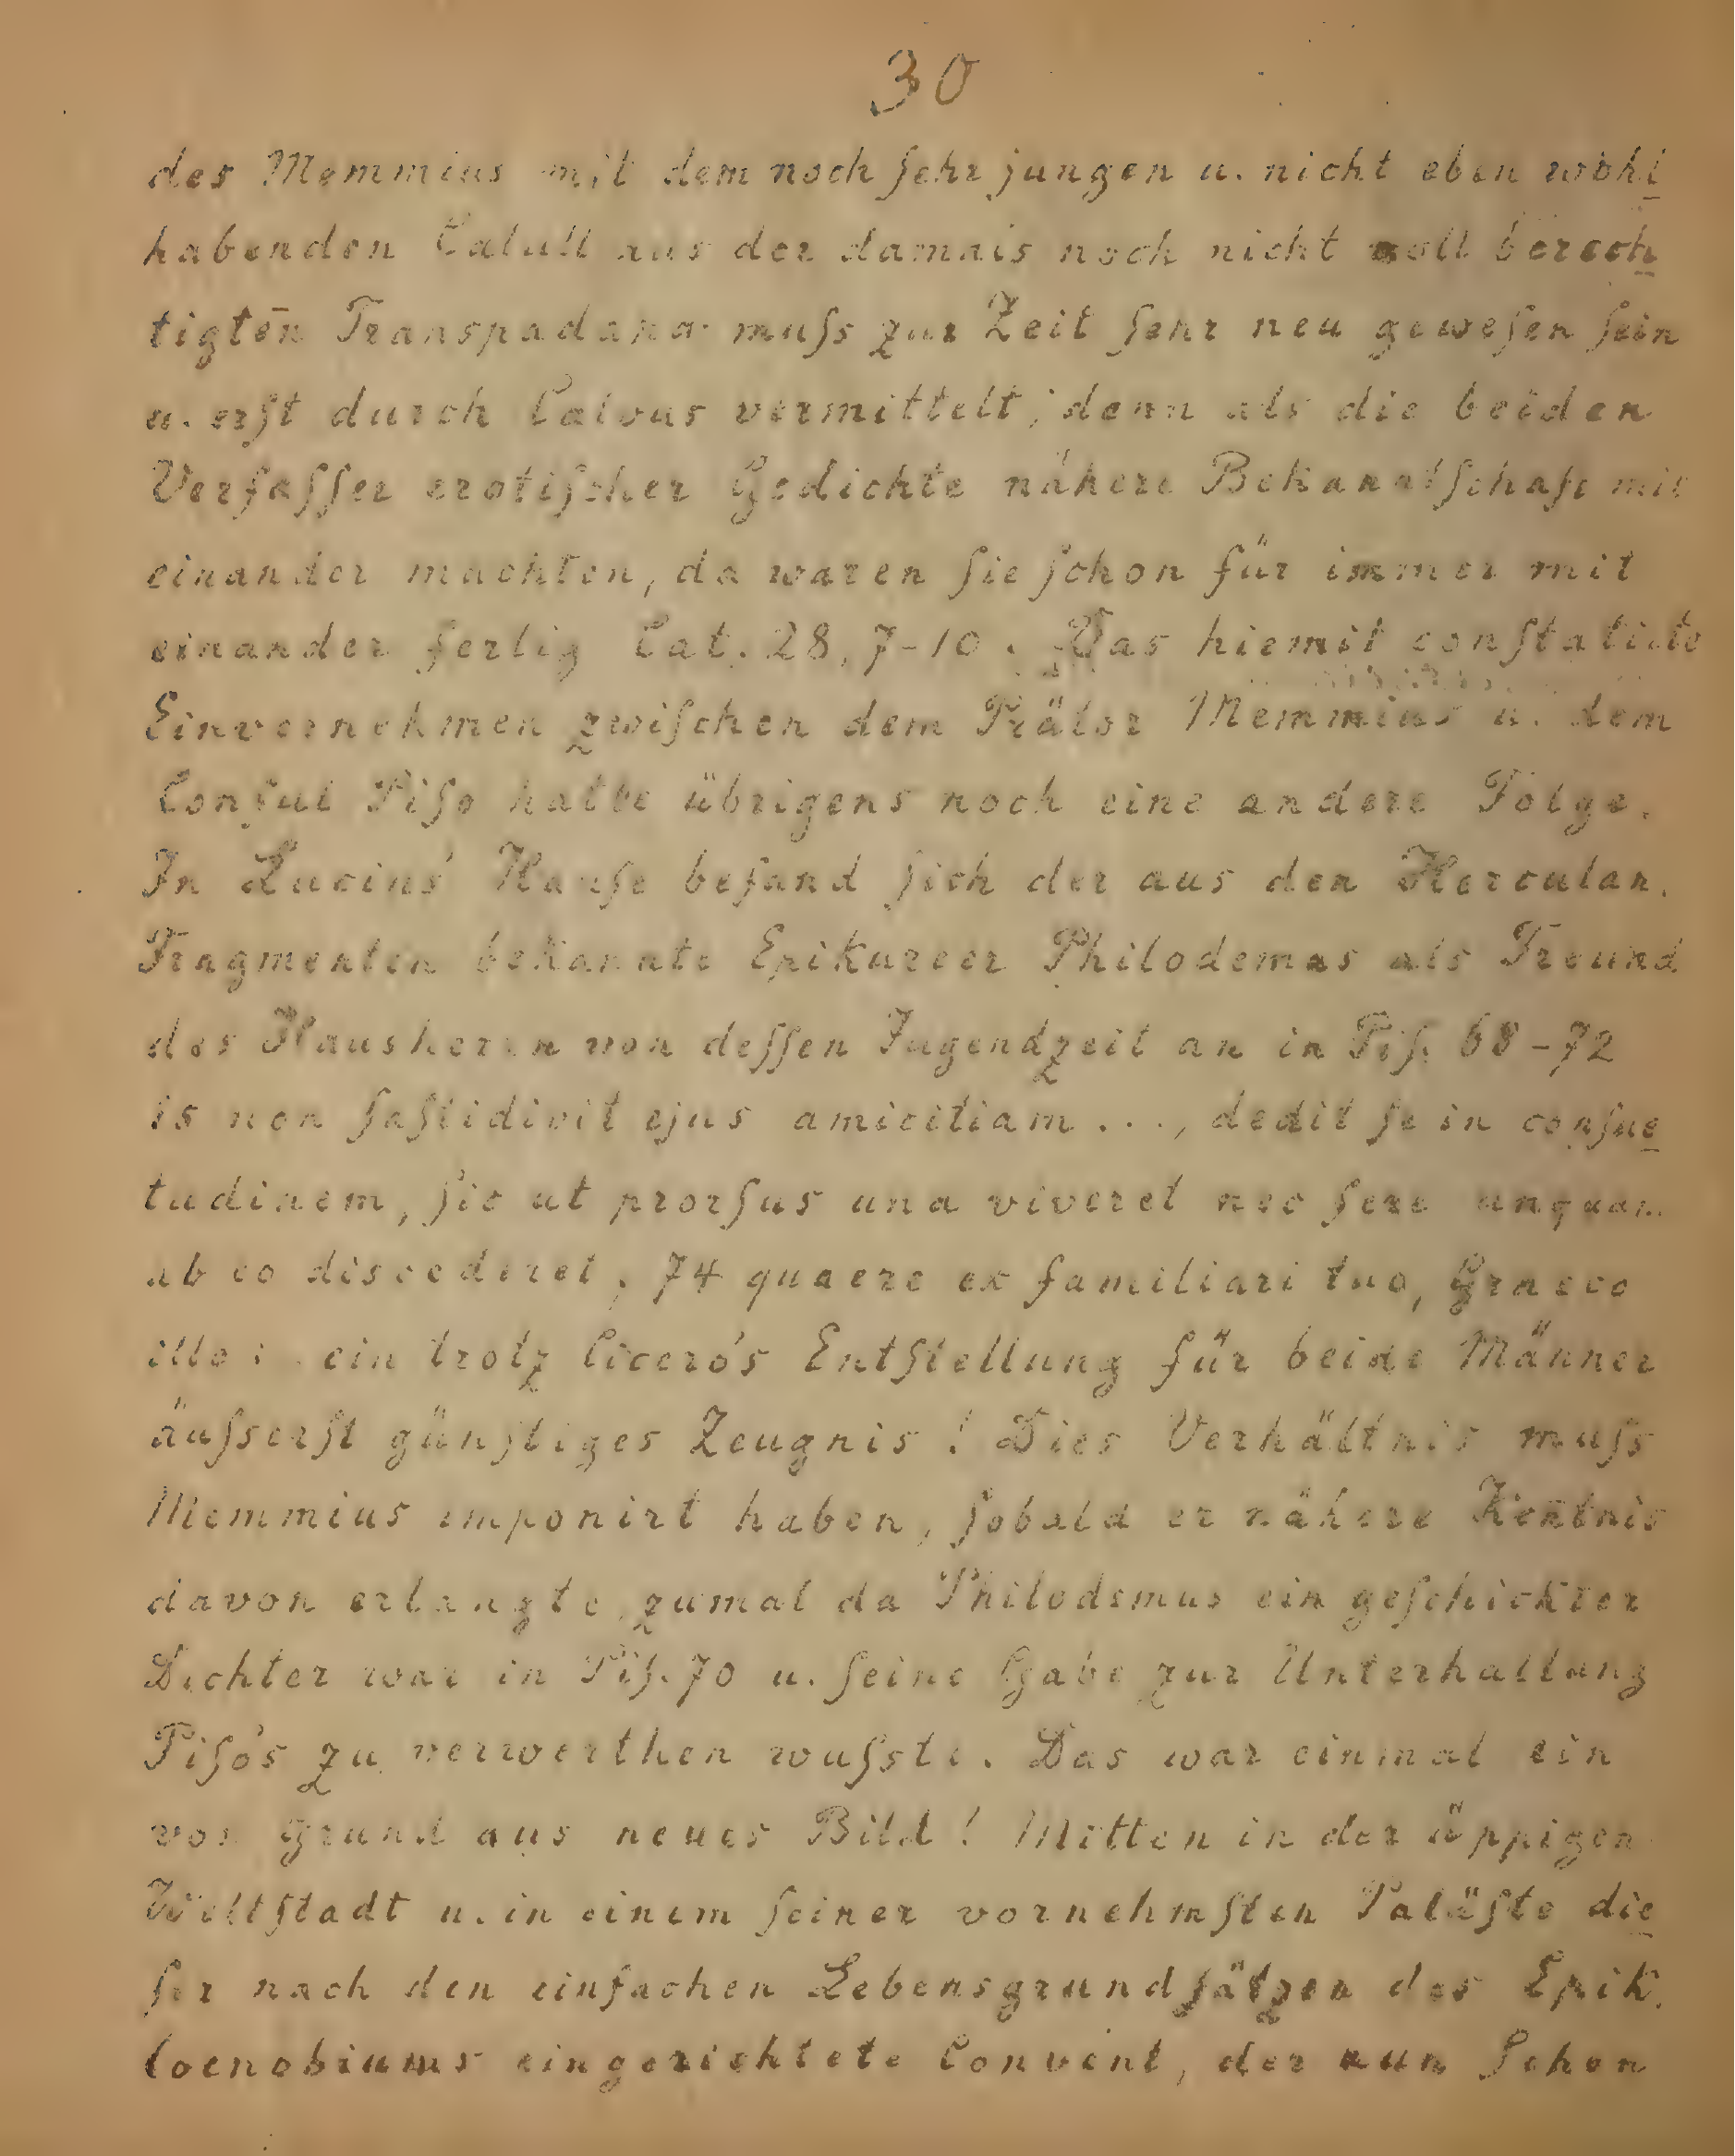 30
des Memmius mit dem noch ſehr jungen u. nicht eben wohl
habenden Catull aus der damals noch nicht voll berech
tigten Transpadana muſs zur Zeit ſehr neu geweſen ſein
u. erſt durch Calvus vermittelt; denn als die beiden
Verfaſſer erotiſcher Gedichte nähere Bekanntſchaft mit
einander machten, da waren ſie ſchon für immer mit
einander fertig Cat. 28, 7-10. Das hiemit conſtatirte
Einvernehmen zwiſchen dem Prätor Memmius u. dem
Conſul Piſo hatte übrigens noch eine andere Folge.
In Lucius' Hauſe befand ſich der aus den Herculan.
Fragmenten bekannte Epikureer Philodemus als Freund
des Hausherrn von deſſen Jugendzeit an in Piſ. 68-72
is non faſtidivit ejus amicitiam ..., dedit ſe in conſue
tudinem, ſic ut prorſus una viveret nec fere unquam
ab eo discederet, 74 quaere ex familiari tuo, Graeco
illo: ein trotz Cicero's Entſtellung für beide Männer
äuſserſt günſtiges Zeugnis! Dies Verhältnis muſs
Memmius imponirt haben, ſobald er nähere Kentnis
davon erlangte, zumal da Philodemus ein geſchickter
Dichter war in Piſ. 70 u. ſeine Gabe zur Unterhaltung
Piſo's zu verwerthen wuſste. Das war einmal ein
von Grund aus neues Bild! Mitten in der üppigen
Weltſtadt u. in einem ſeiner vornehmſten Paläſte die
ſer nach den einfachen Lebensgrundſätzen des Epik.
Coenobiums eingerichtete Convent, der nun ſchon